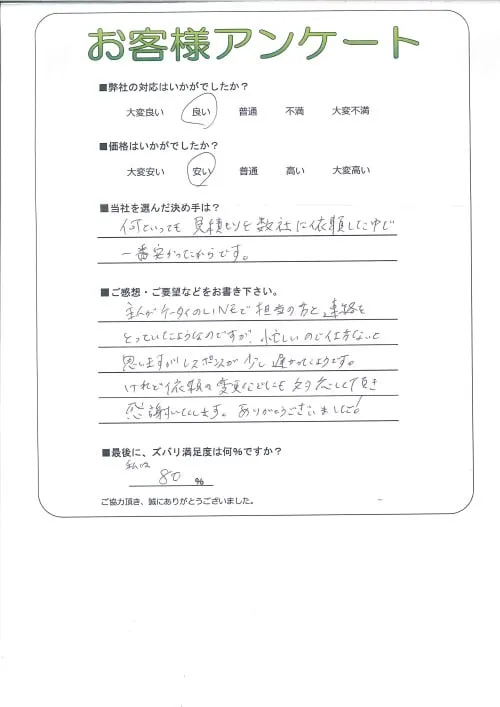 お客様アンケート
■弊社の対応はいかがでしたか？
大変良い 良い 普通 不満 大変不満
■価格はいかがでしたか？
大変安い 安い 普通 高い 大変高い
■当社を選んだ決め手は？
何といっても 見積もりを数社に依頼した中で
一番安かったからです。
■ご感想・ご要望などをお書き下さい。
主人がケータイのLINEで担当の方と連絡を
とっていたようなのですが、忙しいので仕方ないと
思いますがレスポンスが少し遅かったようです。
けれど依頼の変更などにも対応して頂き
感謝いたします。ありがとうございました！
■最後に、ズバリ満足度は何％ですか？
80 ％
ご協力頂き、誠にありがとうございました。